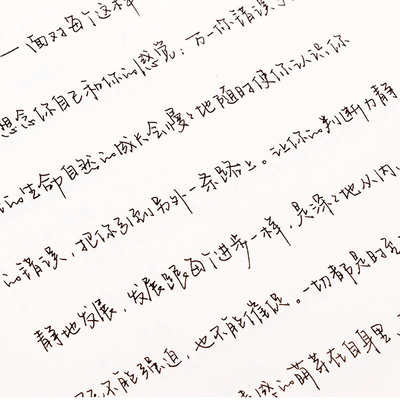 面对每个这样
想念你自己和你的感觉；万一你错误
的生命自然的成长会慢慢地随时使你认识你
的错误，把你引到另外一条路上。让你的判断力静
静地发展，发展跟每个进步一样，是深深地从内
不能强迫，也不能催促。一切都是时至
感的萌芽在自身里